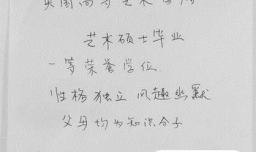 英国高等艺术学府
艺术硕士毕业
一等荣誉学位
性格独立 风趣幽默
父母均为知识分子